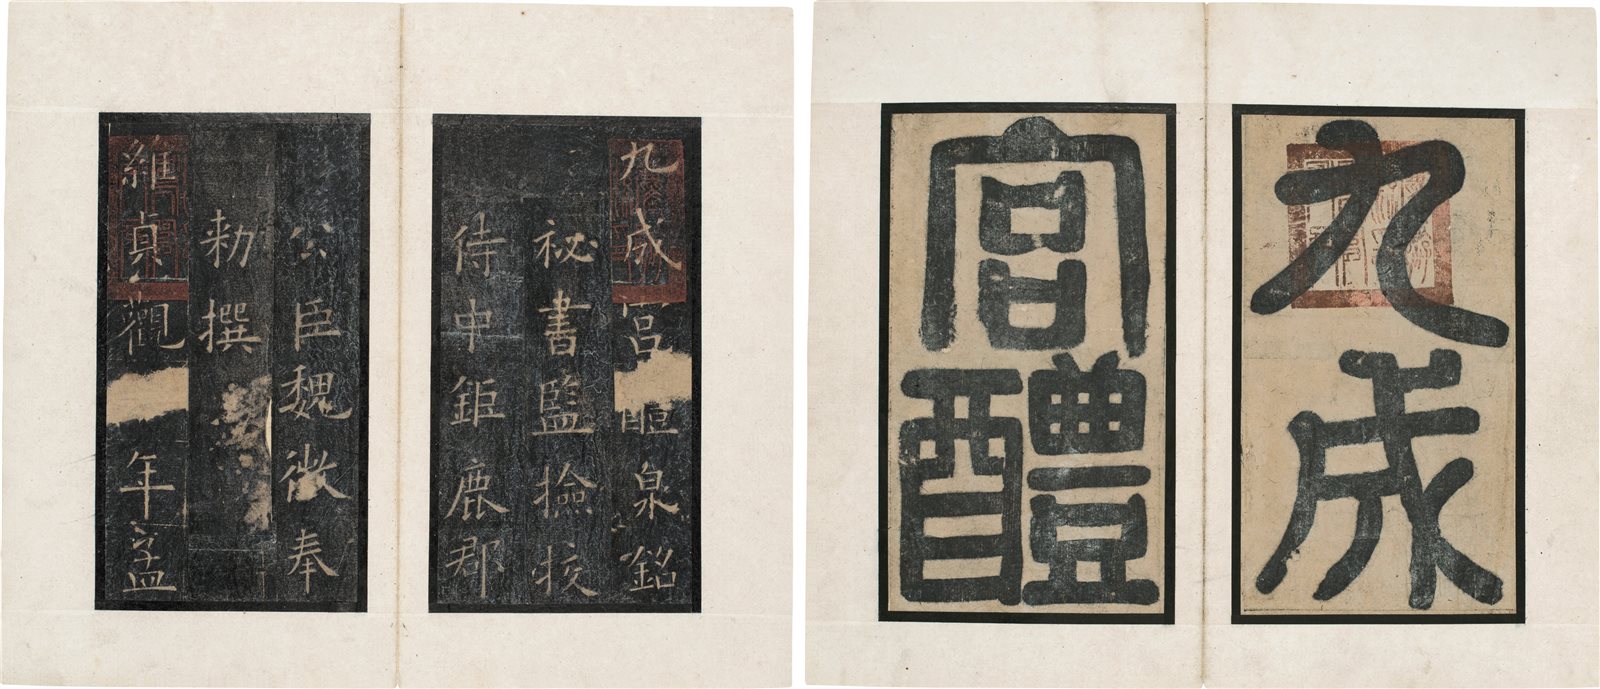 九成
宮醴
九成宮醴泉銘
祕書監撿挍
侍中鉅鹿郡
公臣魏徵奉
勑撰
維貞觀年孟